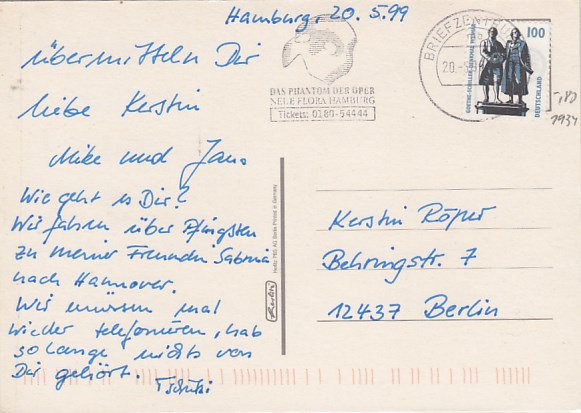 Hamburg, 20.5.99
übermitteln Dir
liebe Kerstin
Mike und Jan.
Wie geht es Dir?
Wir fahren über Pfingsten
zu meiner Freundin Sabrina
nach Hannover.
Wir müssen mal
wieder telefonieren, hab
so lange nichts von
Dir gehört. Tschüßi
DAS PHANTOM DER OPER
NEUE FLORA HAMBURG
Tickets: 0180-54444
BRIEFZENTRUM
20.-5.
100
GOETHE-SCHILLER-DENKMAL WEIMAR
DEUTSCHLAND
1934
Herlitz PBS AG Berlin Printed in Germany
Herlitz
Kerstin Röper
Behringstr. 7
12437 Berlin